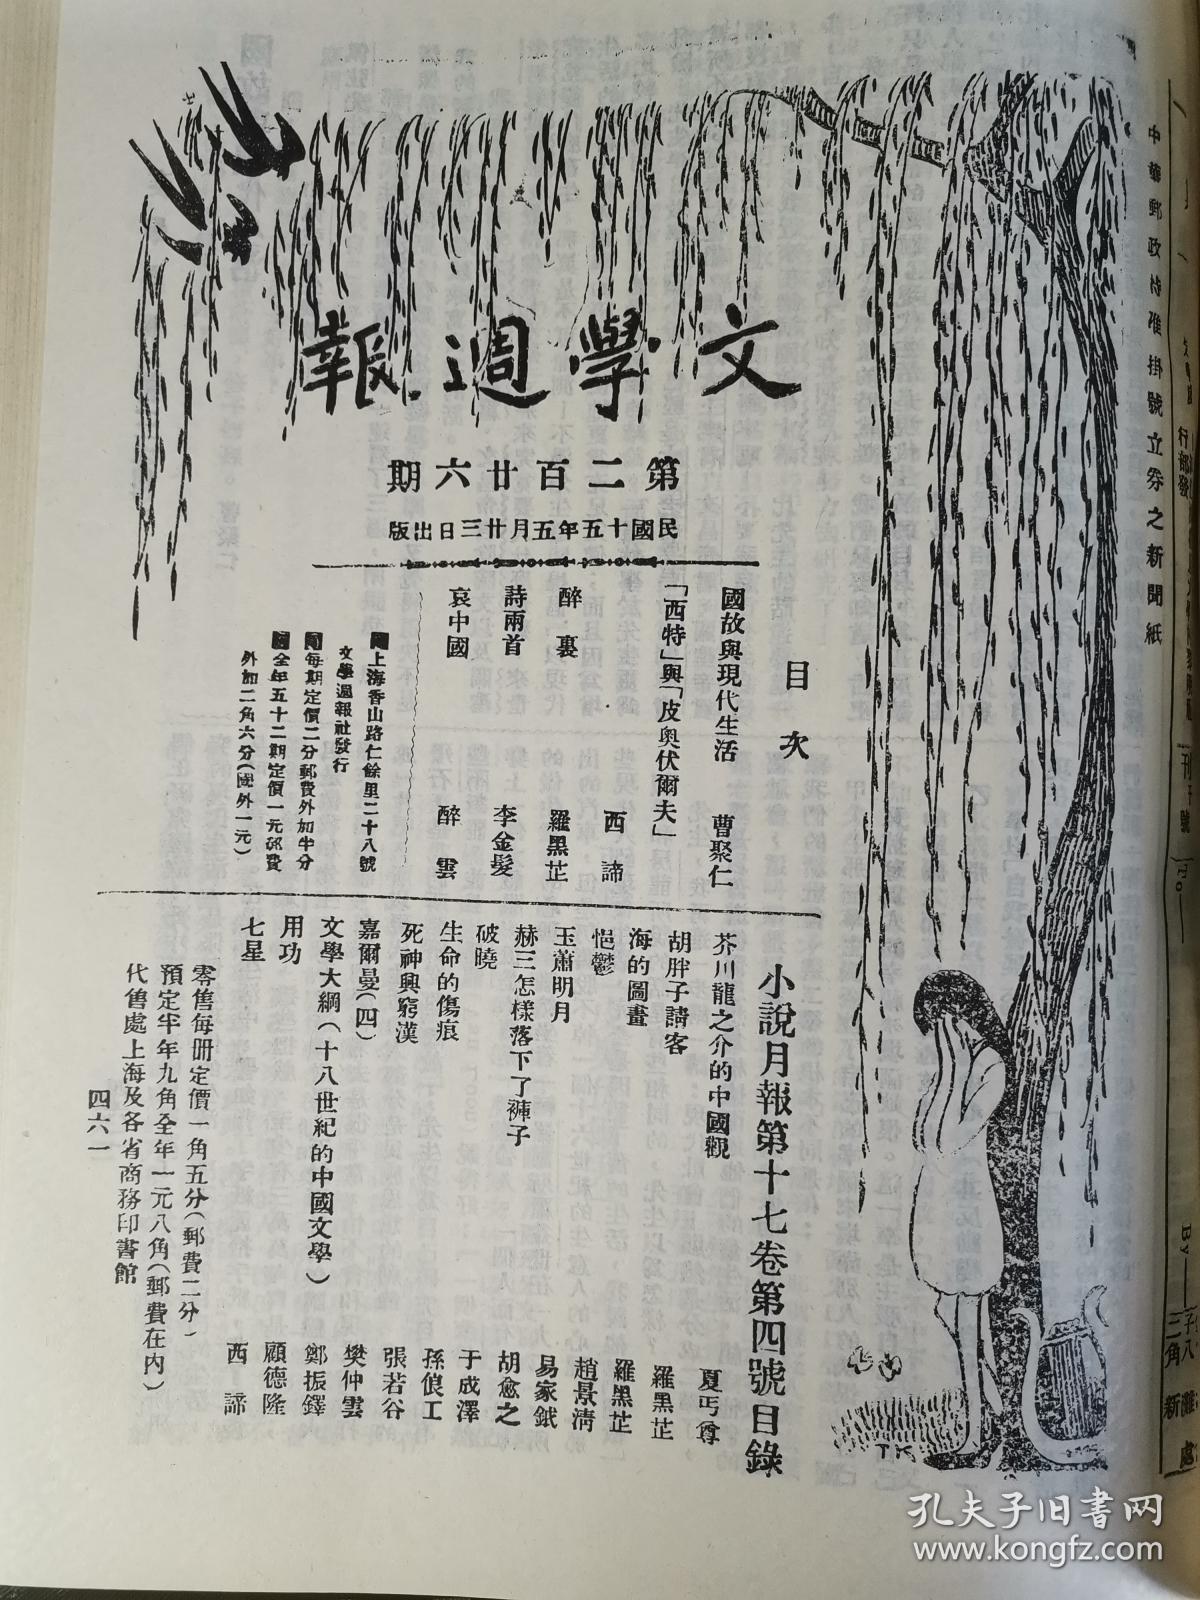 中華郵政特准掛號立券之新聞紙
文學週報
第二百廿六期
民國十五年五月廿三日出版
目次
國故與現代生活 曹聚仁
「西特」與「皮奧伏爾夫」 西諦
醉裏 羅黑芷
詩兩首 李金髮
哀中國 醉雲
上海香山路仁餘里二十八號
文學週報社發行
每期定價二分郵費外加半分
全年五十二期定價一元郵費
外加二角六分(國外一元)
小說月報第十七卷第四號目錄
芥川龍之介的中國觀 夏丏尊
胡胖子請客 羅黑芷
海的圖畫 羅黑芷
悒鬱 趙景淸
玉蕭明月 易家鉞
赫三怎樣落下了褲子 胡愈之
破曉 于成澤
生命的傷痕 孫俍工
死神與窮漢 張若谷
嘉爾曼(四) 樊仲雲
文學大綱(十八世紀的中國文學) 鄭振鐸
用功 顧德隆
七星 西諦
零售每册定價一角五分(郵費二分)
預定半年九角全年一元八角(郵費在內)
代售處上海及各省商務印書館
四六一
TK
行部發
刊
號
To
By
三角
新
處
孔夫子旧书网
www.kongfz.com